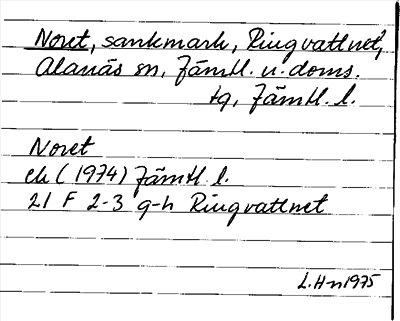 Noret, sankmark, Ringvattnet²,
Alanäs sn, Jämtl. n. doms.
tg, Jämtl. l.
Noret
ek (1974) Jämtl. l.
21 F 2-3 g-h Ringvattnet
L.H-n 1975